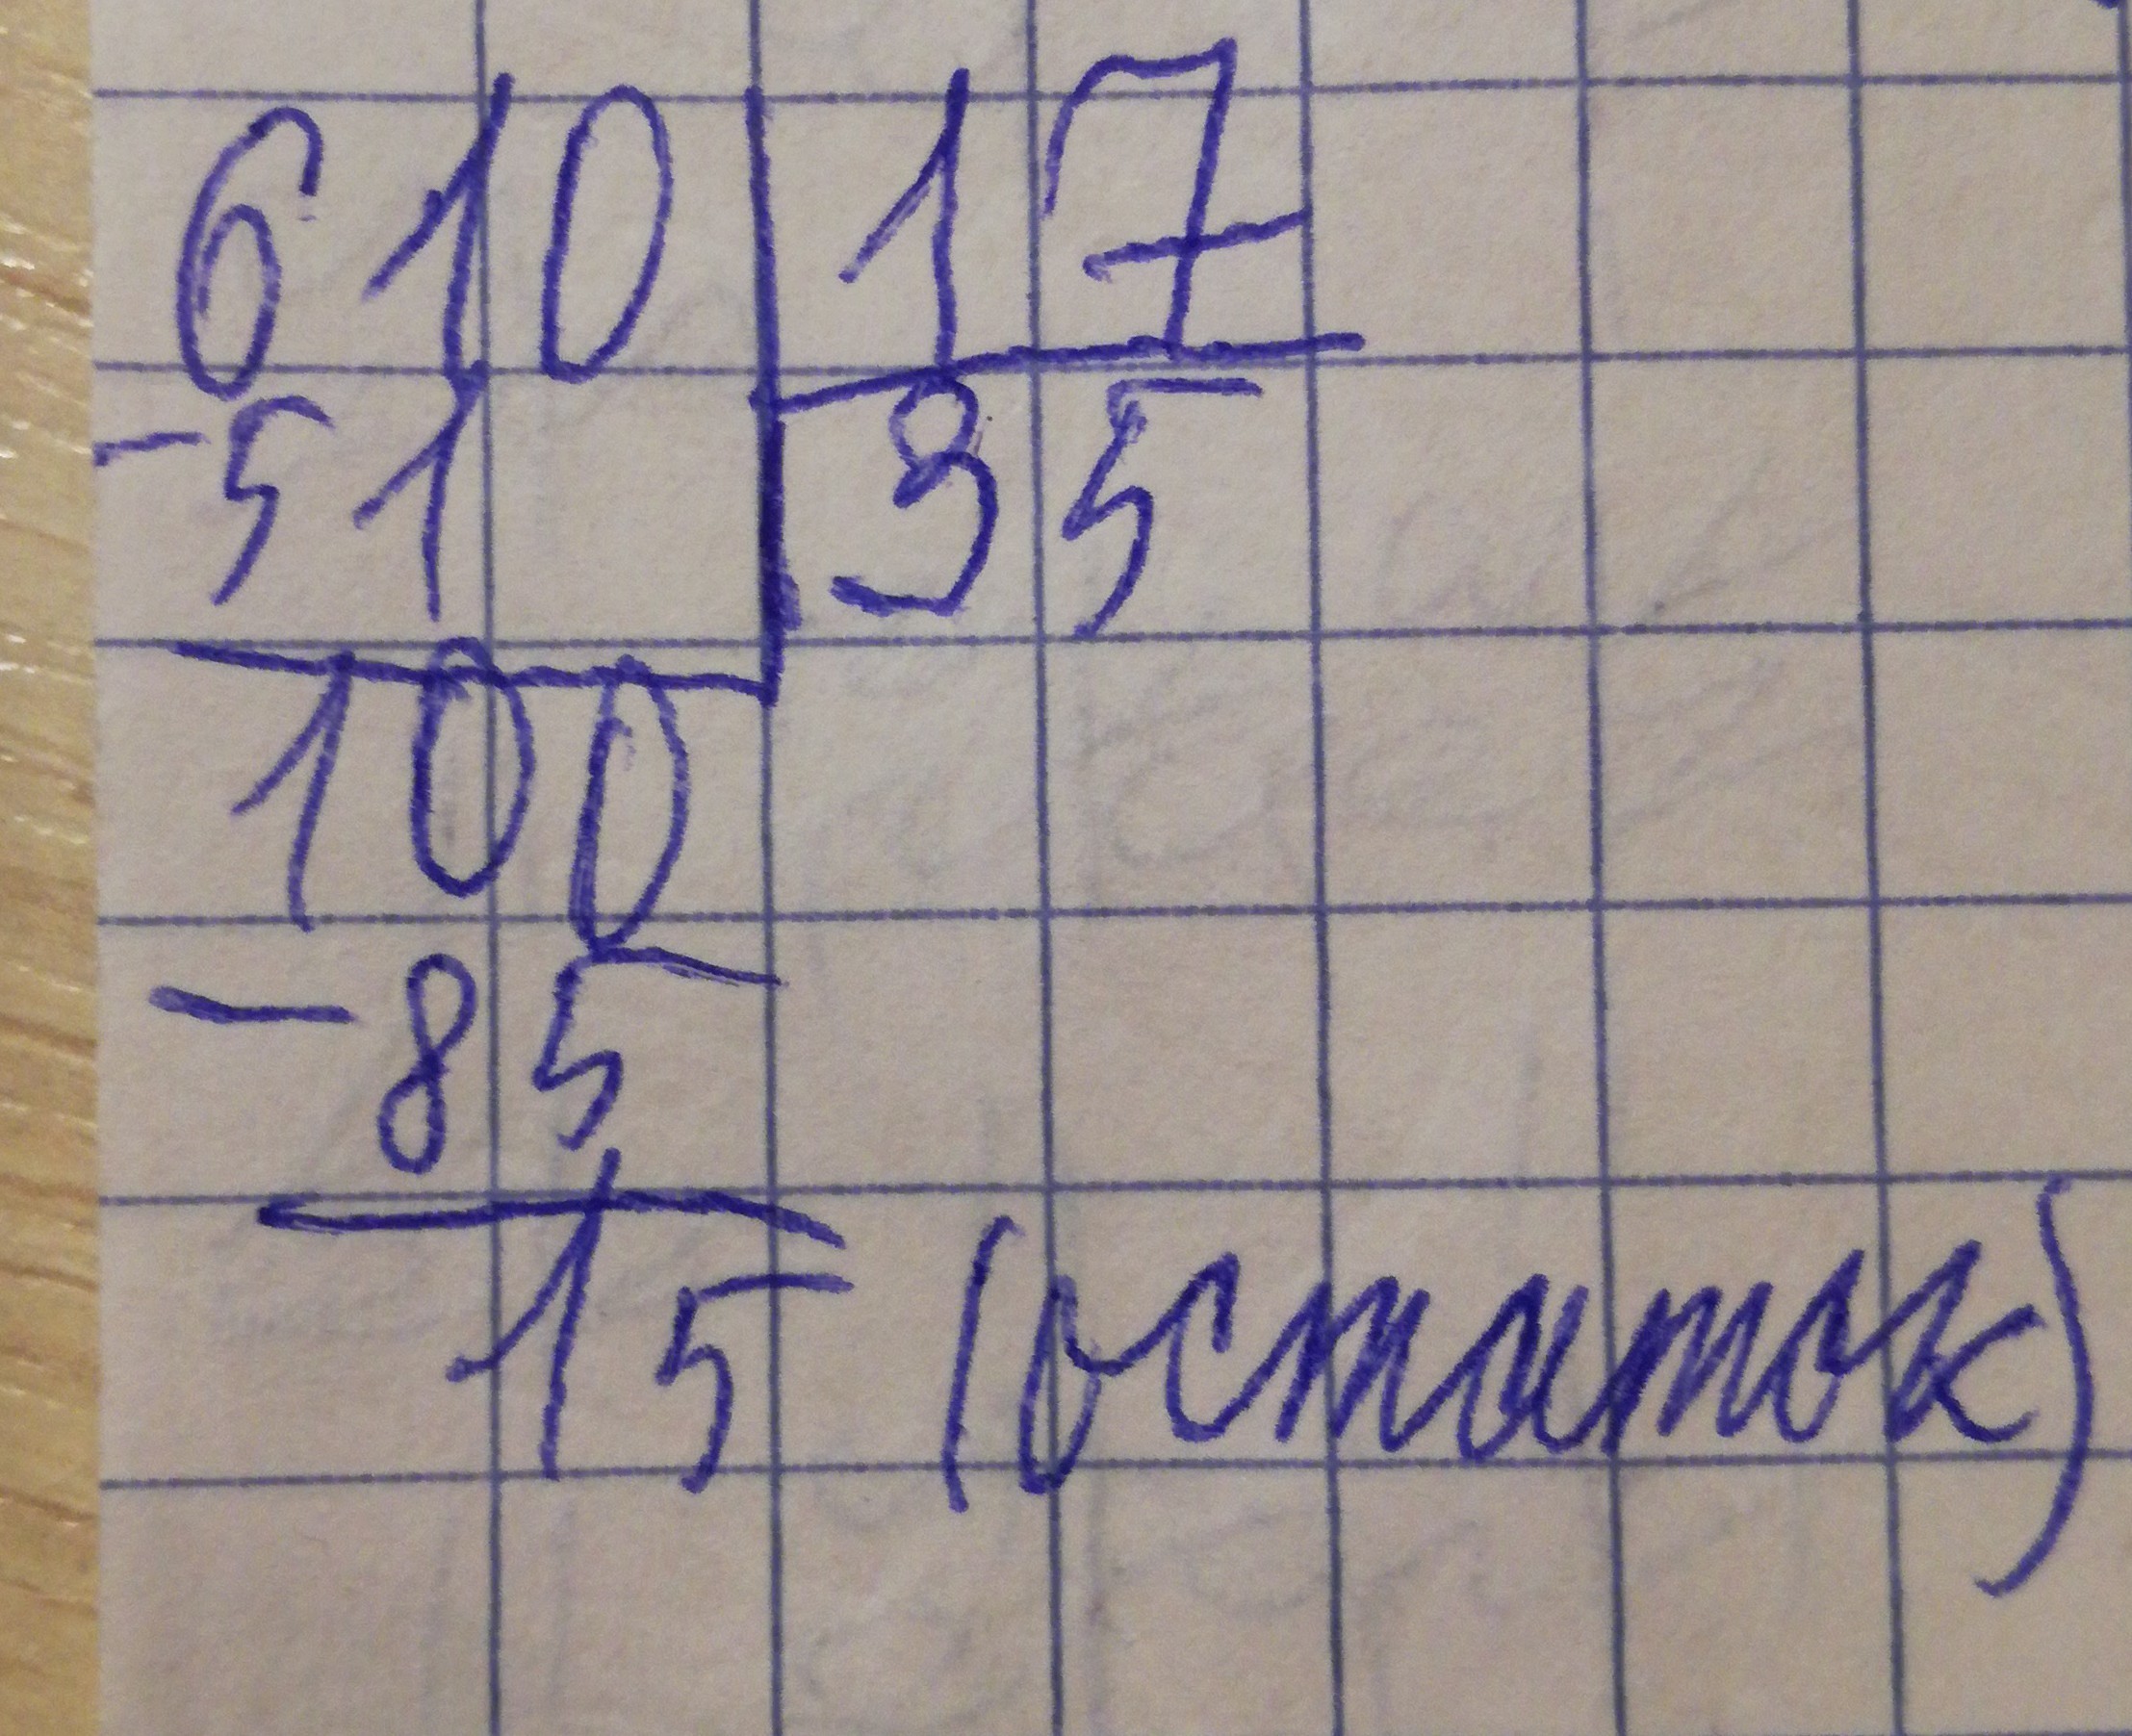 610 17
-51 35
100
-85
15 (остаток)